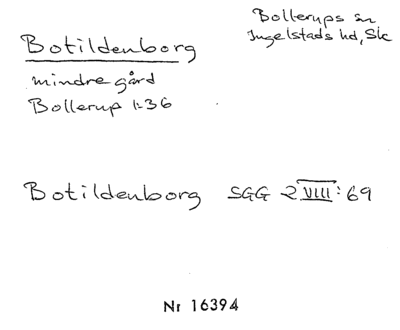 Botildenborg
Bollerups sn
Ingelstads hd, Sk
mindre gård
Bollerup 1:36
Botildenborg SGG 2 VIII: 69
Nr 16394